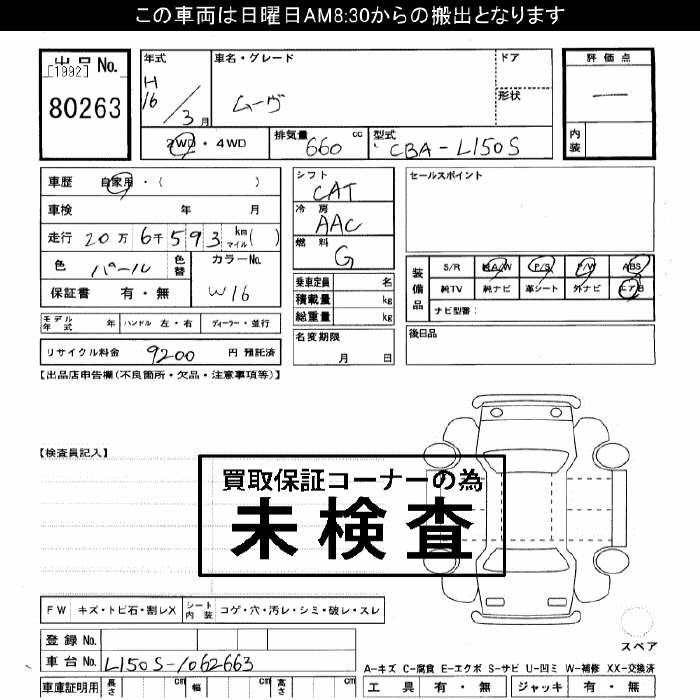 この車両は日曜日AM8:30からの搬出となります
出品No.
[1992]
80263
年式
H
16/3月
車名・グレード
ムーヴ
ドア
形状
2WD・4WD
排気量 660 cc
型式 CBA-L150S
評価点
―
内装
車歴 自家用・( )
車検 年 月
走行 20万6千593 km マイル( )
色 パール 色替
カラーNo. W16
保証書 有・無
シフト
CAT
冷房
AAC
燃料
G
乗車定員 名
積載量 kg
総重量 kg
名変期限
月 日
セールスポイント
装備品
S/R 純A/W P/S P/W ABS
純TV 純ナビ 革シート 外ナビ エアB
ナビ型番:
後日品
モデル年式 年 ハンドル 左・右 ディーラー・並行
リサイクル料金 9200 円 預託済
【出品店申告欄(不良箇所・欠品・注意事項等)】
【検査員記入】
買取保証コーナーの為
未検査
FW キズ・トビ石・割レX シート内装 コゲ・穴・汚レ・シミ・破レ・スレ
登録No.
車台No. L150S-1062663
車庫証明用 長さ cm 幅 cm 高さ cm
スペア
A-キズ C-腐食 E-エクボ S-サビ U-凹ミ W-補修 XX-交換済
工具 有・無 ジャッキ 有・無